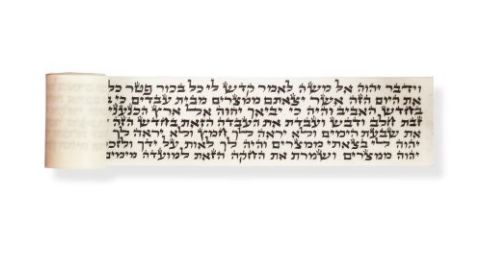 וידבר יהוה אל משה לאמר קדש לי כל בכור פטר כל
את היום הזה אשר יצאתם ממצרים מבית עבדים כי
בחדש האביב והיה כי יביאך יהוה אל ארץ הכנעני
זבת חלב ודבש ועבדת את העבדה הזאת בחדש הזה
את שבעת הימים ולא יראה לך חמץ ולא יראה לך
יהוה לי בצאתי ממצרים והיה לך לאות על ידך
יהוה ממצרים ושמרת את החקה הזאת למועדה מימים